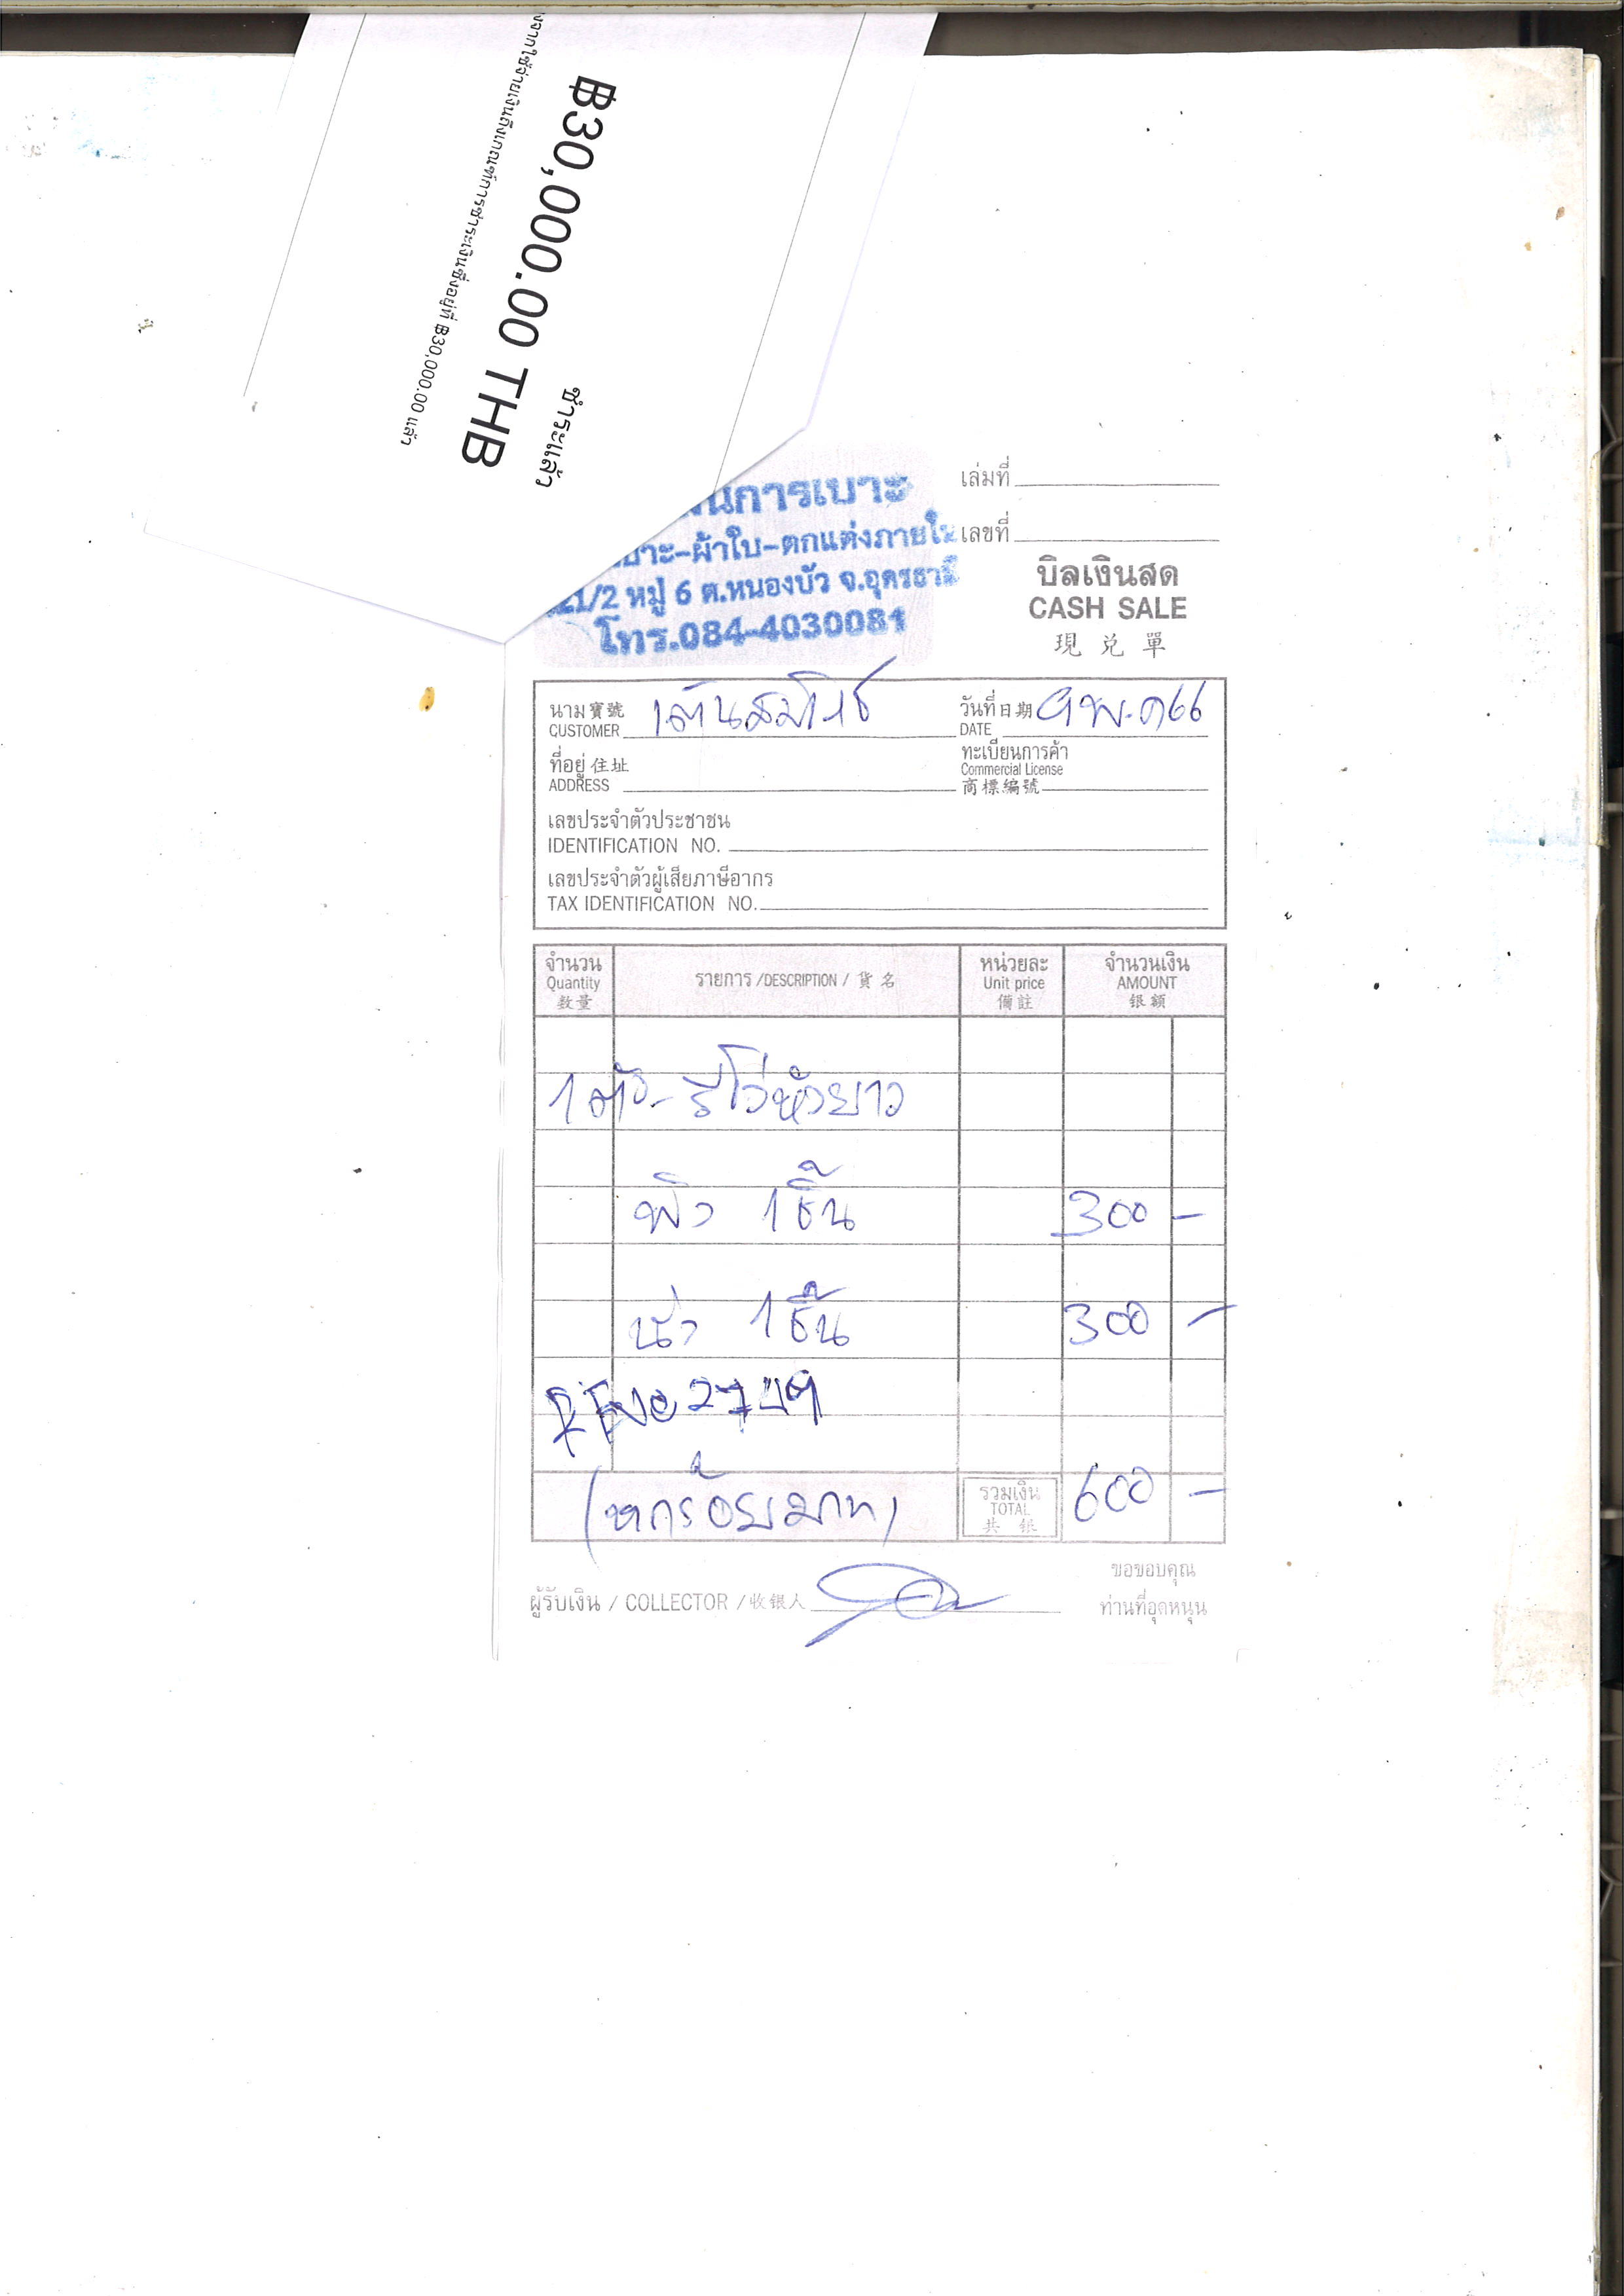 งจากใช้จ่ายเงินถึงเกณฑ์การชำระเงินซึ่งอยู่ที่ ฿30,000.00 แล้ว
฿30,000.00 THB
ชำระแล้ว
นการเบาะ
บาะ-ผ้าใบ-ตกแต่งภายใน
21/2 หมู่ 6 ต.หนองบัว จ.อุดรธานี
โทร.084-4030081
เล่มที่
เลขที่
บิลเงินสด
CASH SALE
現兌單
นาม寶號
CUSTOMER เต้นสมโภช
วันที่日期 9 พ.ค 66
DATE
ที่อยู่ 住址
ADDRESS
ทะเบียนการค้า
Commercial License
商標編號
เลขประจำตัวประชาชน
IDENTIFICATION NO.
เลขประจำตัวผู้เสียภาษีอากร
TAX IDENTIFICATION NO.
จำนวน รายการ /DESCRIPTION / 貨名 หน่วยละ จำนวนเงิน
Quantity Unit price AMOUNT
数量 備註 銀額
รีโว่หัวยาว
พิง 1 ชิ้น 300 -
นั่ง 1 ชิ้น 300 -
2749
(หกร้อยบาท) รวมเงิน 600 -
TOTAL
共銀
ขอขอบคุณ
ผู้รับเงิน / COLLECTOR /收银人 ท่านที่อุดหนุน